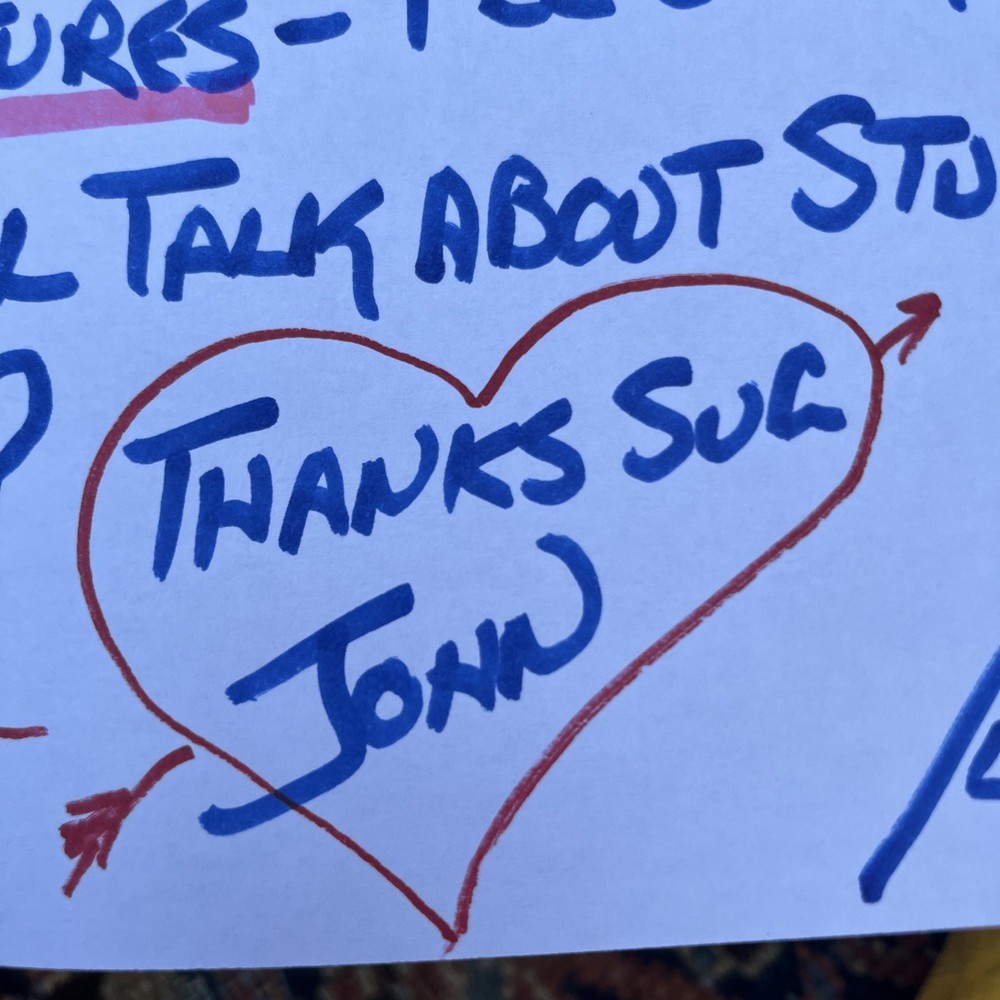 URES-
L TALK ABOUT STU
THANKS SUG
JOHN